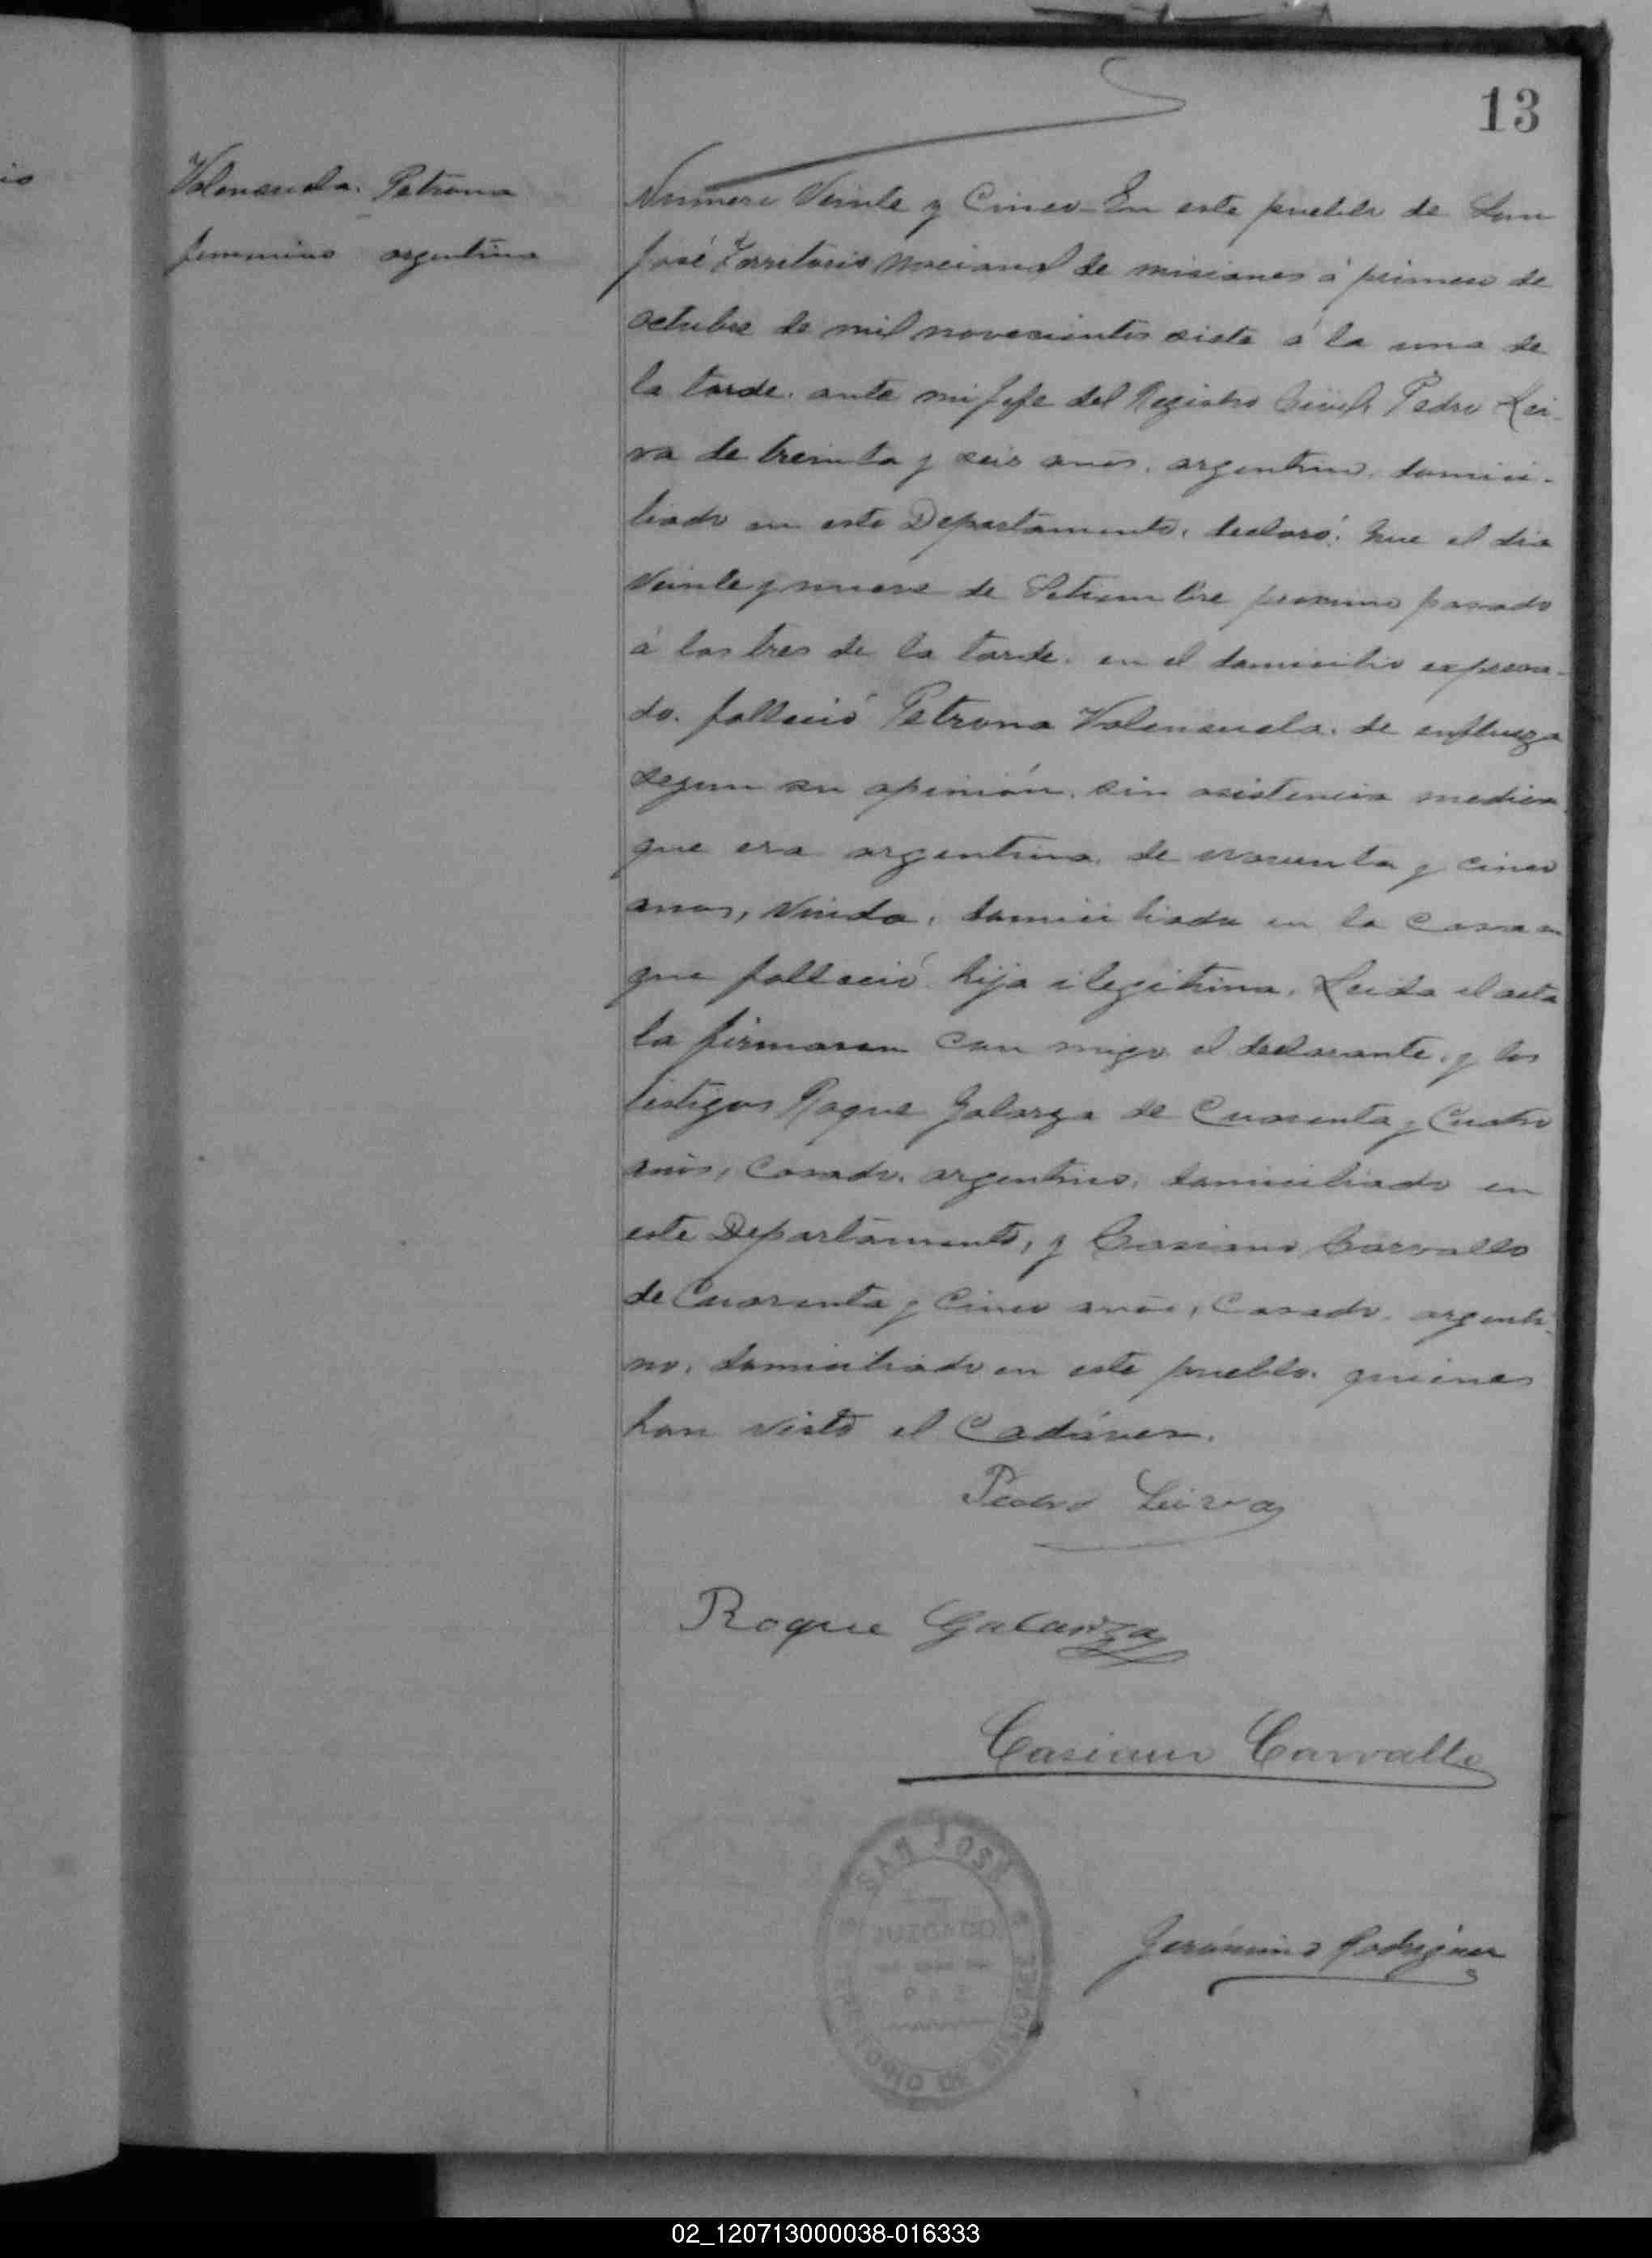 13
Valensuela. Petrona
femenino argentina
Numero Veinte y Cinco En este pueblo de San
José Territorio Nacional de misiones á primero de
octubre de mil novecientos siete á la una de
la tarde. ante mi Jefe del Registro Civil, Pedro Lei-
va de treinta y seis años, argentino, domici-
liado en este Departamento, declaró: Que el dia
Veinte y nueve de Setiembre proximo pasado
á las tres de la tarde. en el domicilio expresa-
do. falleció Petrona Valensuela. de
segun su opinión. sin asistencia medica
que era argentina. de y cinco
anos, Viuda, domiciliada en la Casa en
que falleció hija ilegitima. Leida el acta
la firmaron con migo el declarante. y los
testigos Roque Galarza de Cuarenta y Cuatro
años, Casado. argentino. domiciliado en
este Departamento, y Casiano Carvallo
de Cuarenta y Cinco años, Casado. argenti-
no. domiciliado en este pueblo. quienes
han visto el Cadáver.
Pedro Leiva
Roque Galarza
Casiano Carvallo
Gerónimo Rodriguez
SAN JOSE
JUZGADO
TERRITORIO DE MISIONES
02_120713000038-016333